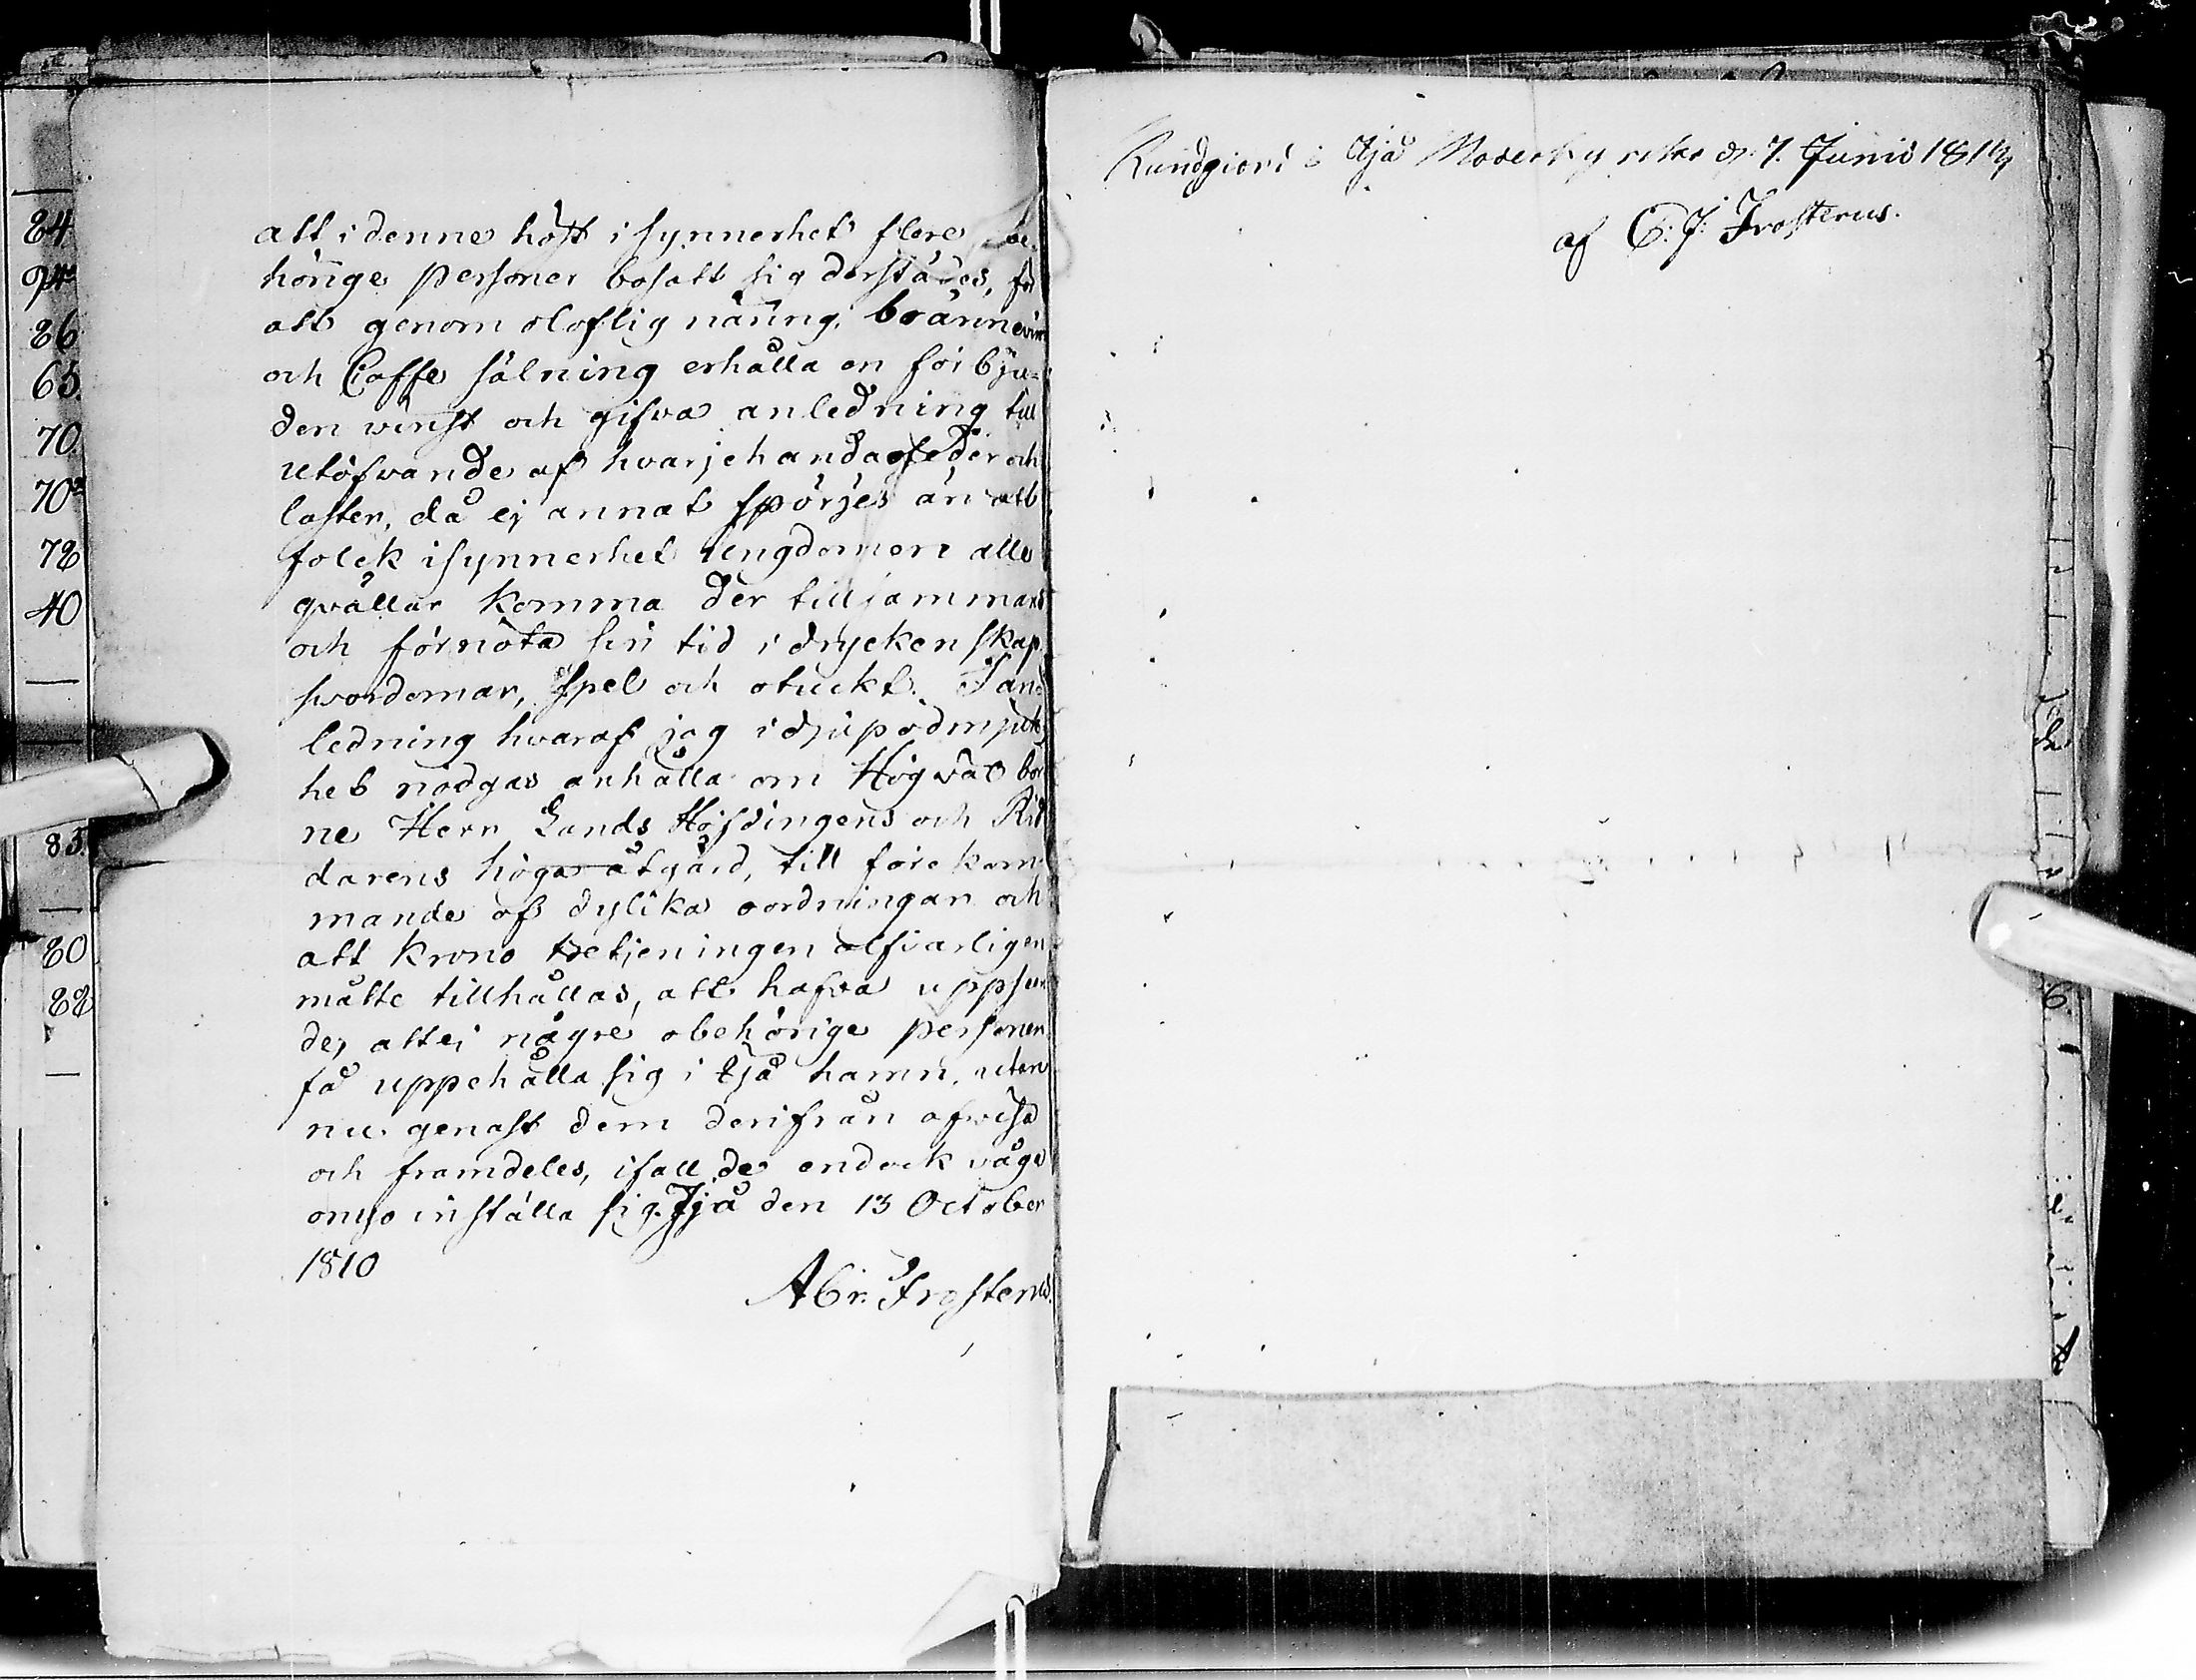 84
94
86
65.
70.
70
72
40
85.
80
88
att i denne höst i synnerhet flere obe-
hörige personer bosatt sig derstädes, för
att genom oloflig näring, brännevin
och Caffe sälning erhålla en förbju-
den winst och gifva anledning till
utöfvande af hvarjehanda oseder och
laster, då ej annat spörjes än att
folck isynnerhet ungdomen alla
qvällar komma der tillsammans
och förnöta sin tid i dryckenskap,
svordomar, spel och otuckt. I an-
ledning hvaraf jag i djup ödmjuk-
het nödgas anhålla om Högvälbor
ne Herr Lands Höfdingens och Rid
darens höga åtgärd, till förekom-
mande af dylika oordningar och
att Krono betjeningen alfvarligen
måtte tillhållas, att hafva uppseen
de, att ej någre obehörige personer
få uppehålla sig i Ijå hamn, utan
nu genast dem derifrån afvisa
och framdeles, ifall de endock våga
omso inställa sig. Ijå den 13 October
1810
Abr. Frosterus.
Kundgiord i Ijå Moderkyrka d. 7. Junii 1814
af C: J: Frosterus.